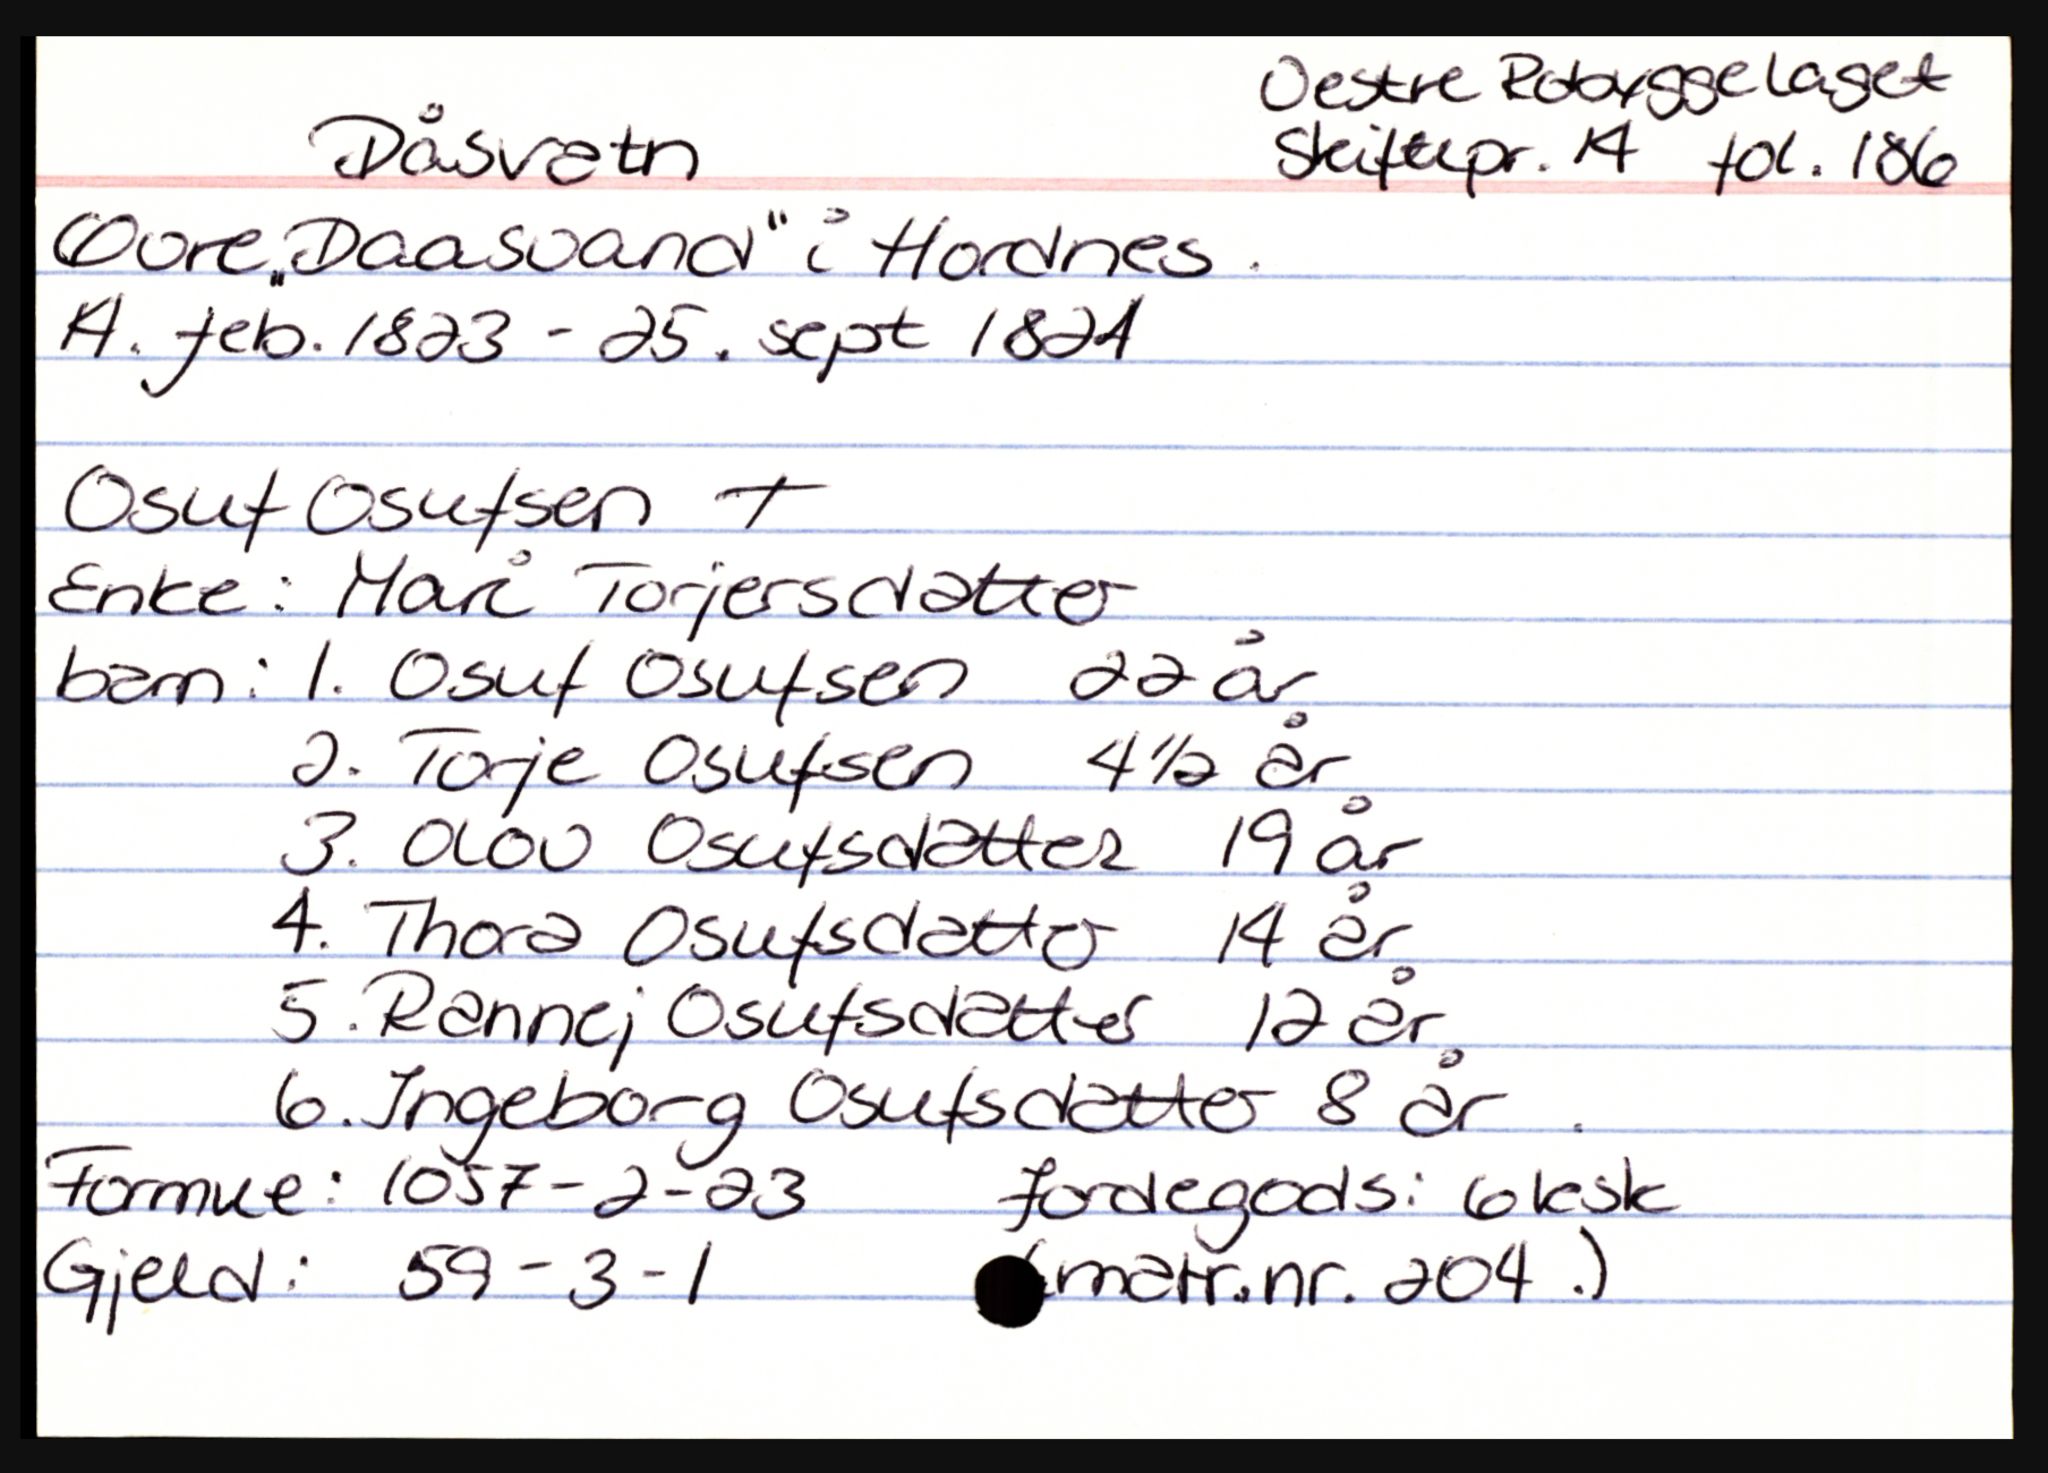 Oestre Robyggelaget
Dåsvatn Skiftepr. 14 fol. 186
Øvre „Daasvand" i Hordnes.
14. feb. 1823 - 25. sept 1824
Osuf Osufsen +
Enke: Mari Torjersdatter
barn: 1. Osuf Osufsen 22 år
2. Torje Osufsen 4 1/2 år
3. Olov Osufsdatter 19 år
4. Thora Osufsdatter 14 år
5. Rannej Osufsdatter 12 år
6. Ingeborg Osufsdatter 8 år.
Formue: 1057-2-23 Jordegods: 6 ksk
Gjeld: 59-3-1 (matr.nr. 204.)